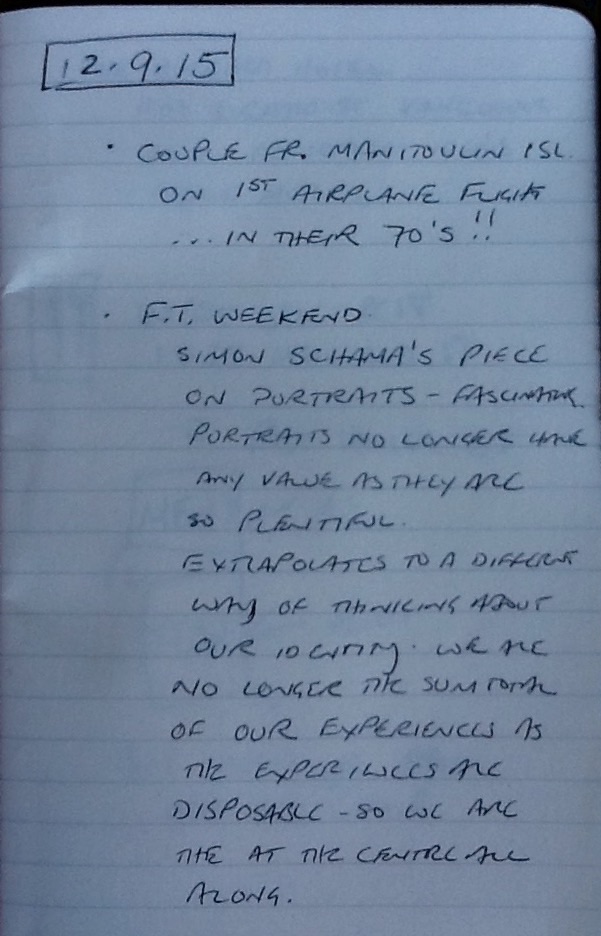 12.9.15
• COUPLE FR. MANITOULIN ISL.
ON 1ST AIRPLANE FLIGHT
... IN THEIR 70'S !!
• F.T. WEEKEND.
SIMON SCHAMA'S PIECE
ON PORTRAITS - FASCINATING.
PORTRAITS NO LONGER HAVE
ANY VALUE AS THEY ARE
SO PLENTIFUL.
EXTRAPOLATES TO A DIFFERENT
WAY OF THINKING ABOUT
OUR IDENTITY. WE ARE
NO LONGER THE SUM TOTAL
OF OUR EXPERIENCES AS
THE EXPERIENCES ARE
DISPOSABLE - SO WE ARE
THE AT THE CENTRE ALL
ALONG.